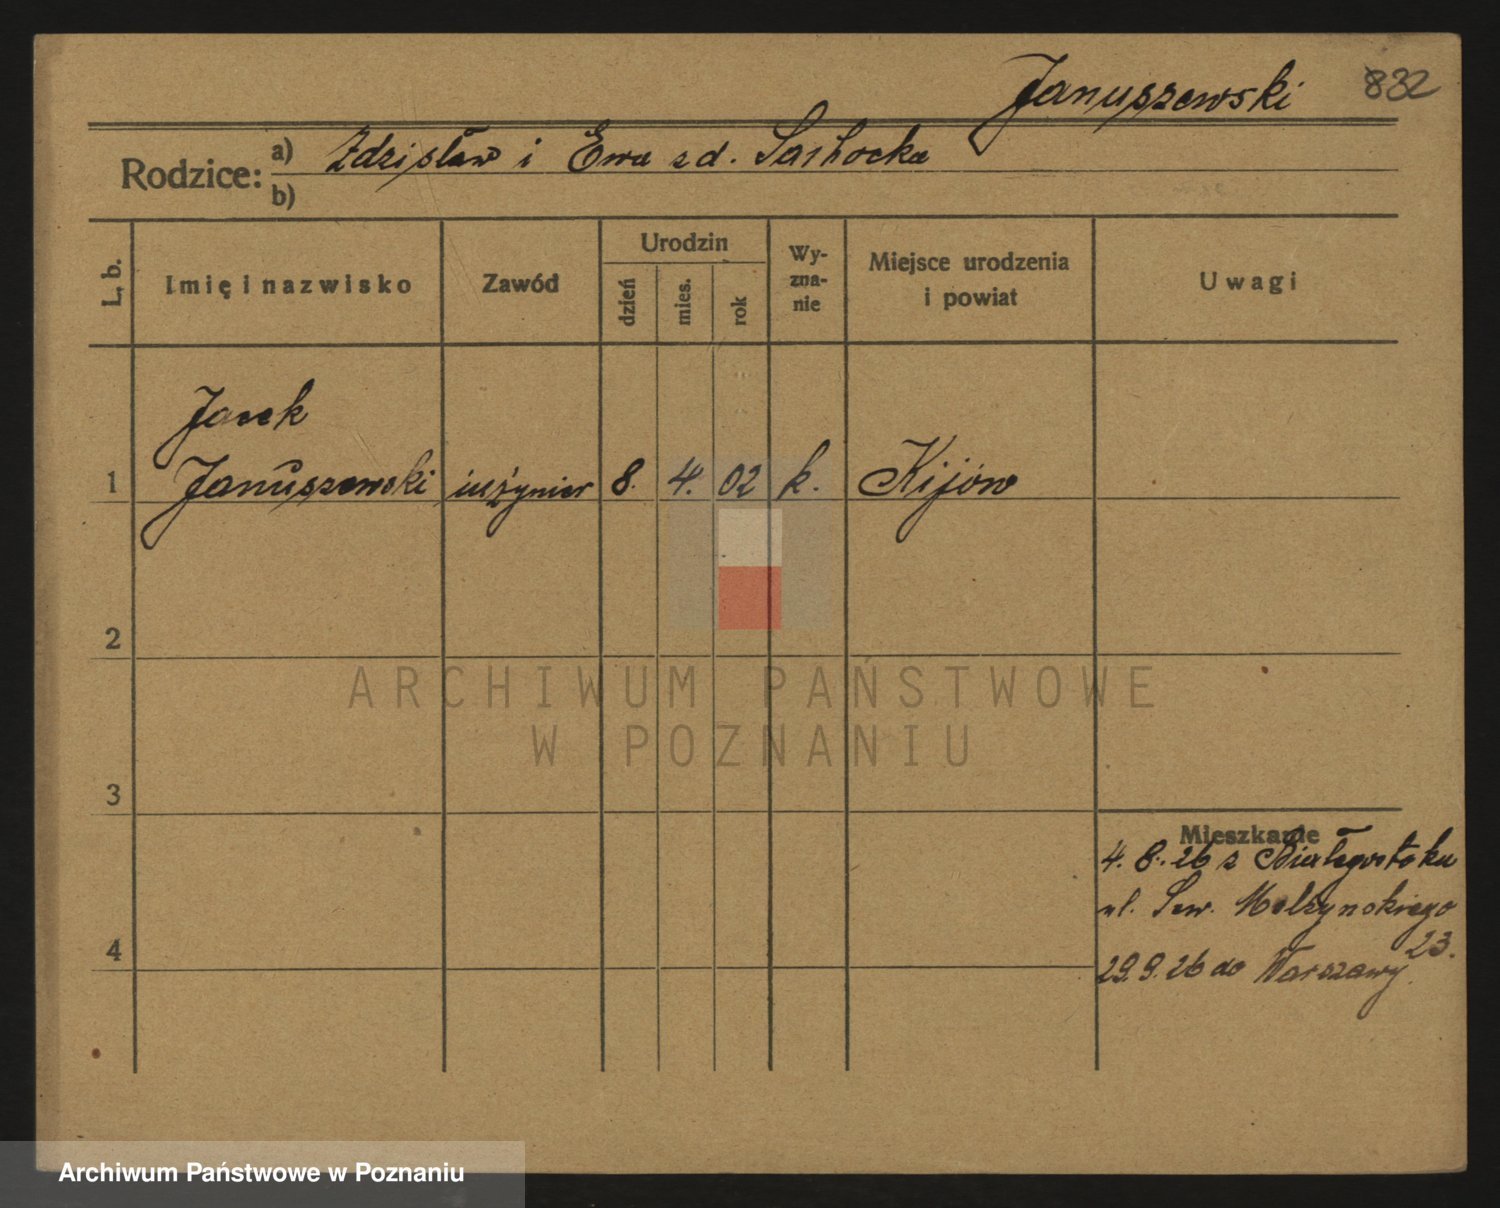 Januszewski 832
Rodzice: a) Zdzisław i Ewa z d.
b)
L. b.
Imię i nazwisko
Zawód
Urodzin
dzień
mies.
rok
Wy-
zna-
nie
Miejsce urodzenia
i powiat
Uwagi
Jacek
1 Januszewski inżynier 8. 4. 02 k. Kijów
2
3
4
Mieszkanie
4. 8. 26 z Białegostoku
ul. Sew. Mielżyńskiego
23.
29. 9. 26 do Warszawy.
ARCHIWUM PAŃSTWOWE
W POZNANIU
Archiwum Państwowe w Poznaniu